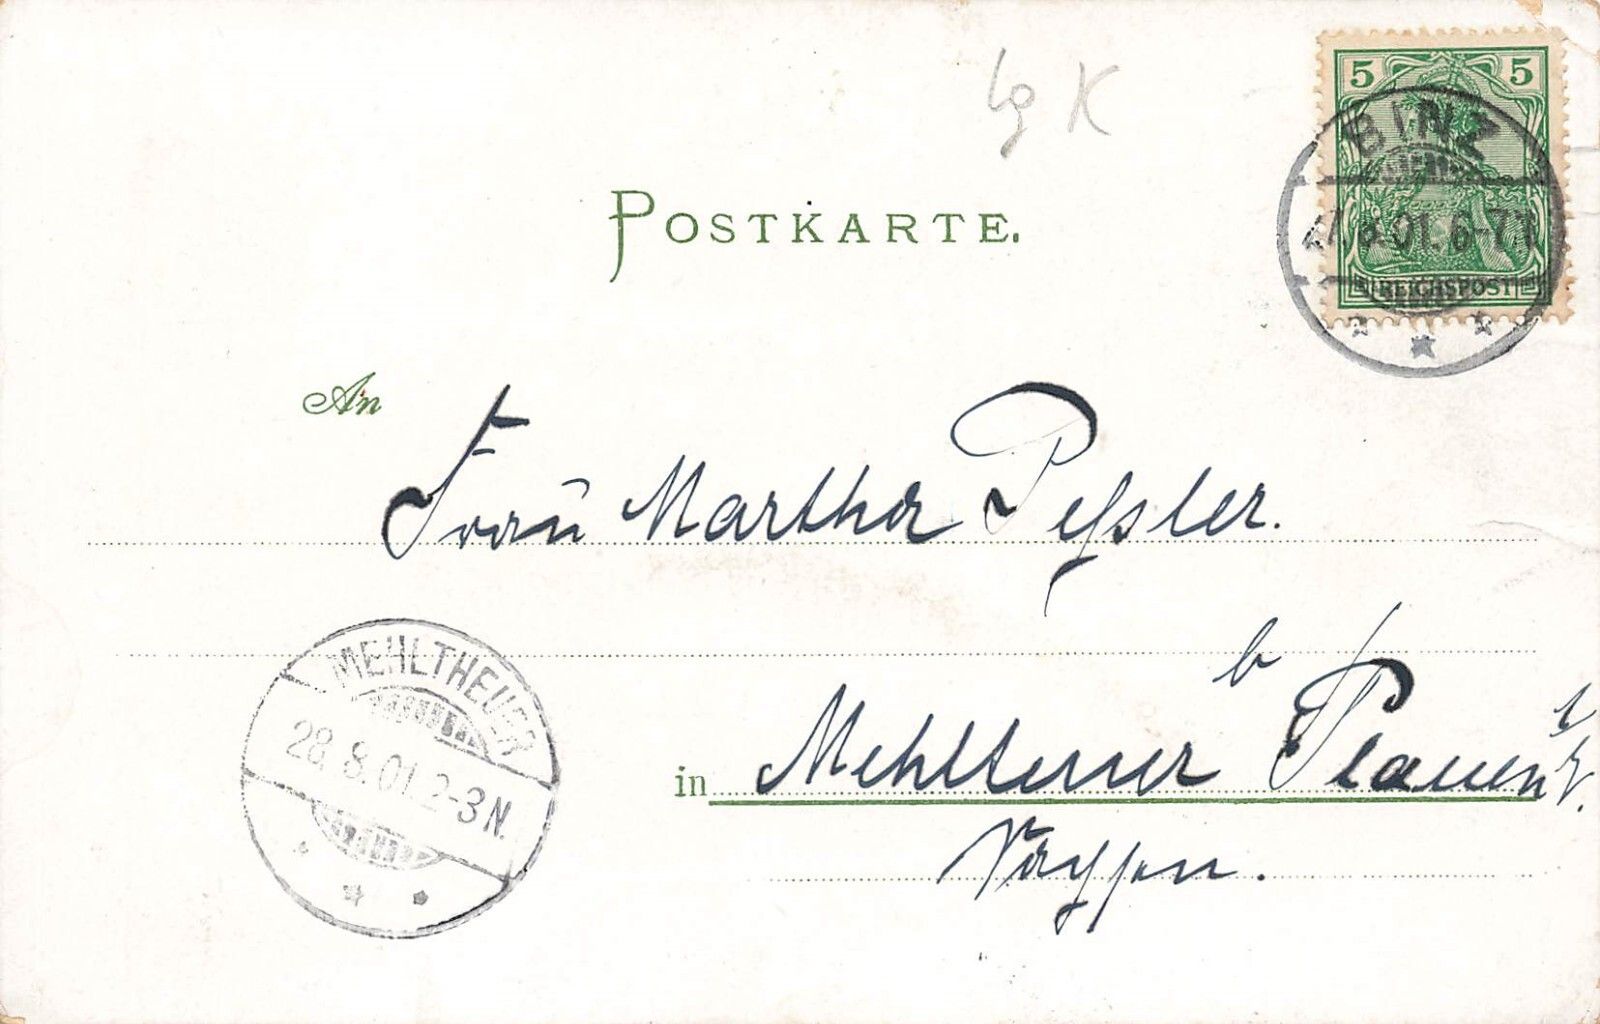 lg K
5 5
BINZ
27.8.01. 6-7N.
REICHSPOST
POSTKARTE.
An
Frau Martha Peßler.
MEHLTHEUER
28.8.01. 2-3 N.
b
in Mehlteuer Plauen i. V.
Sachsen.